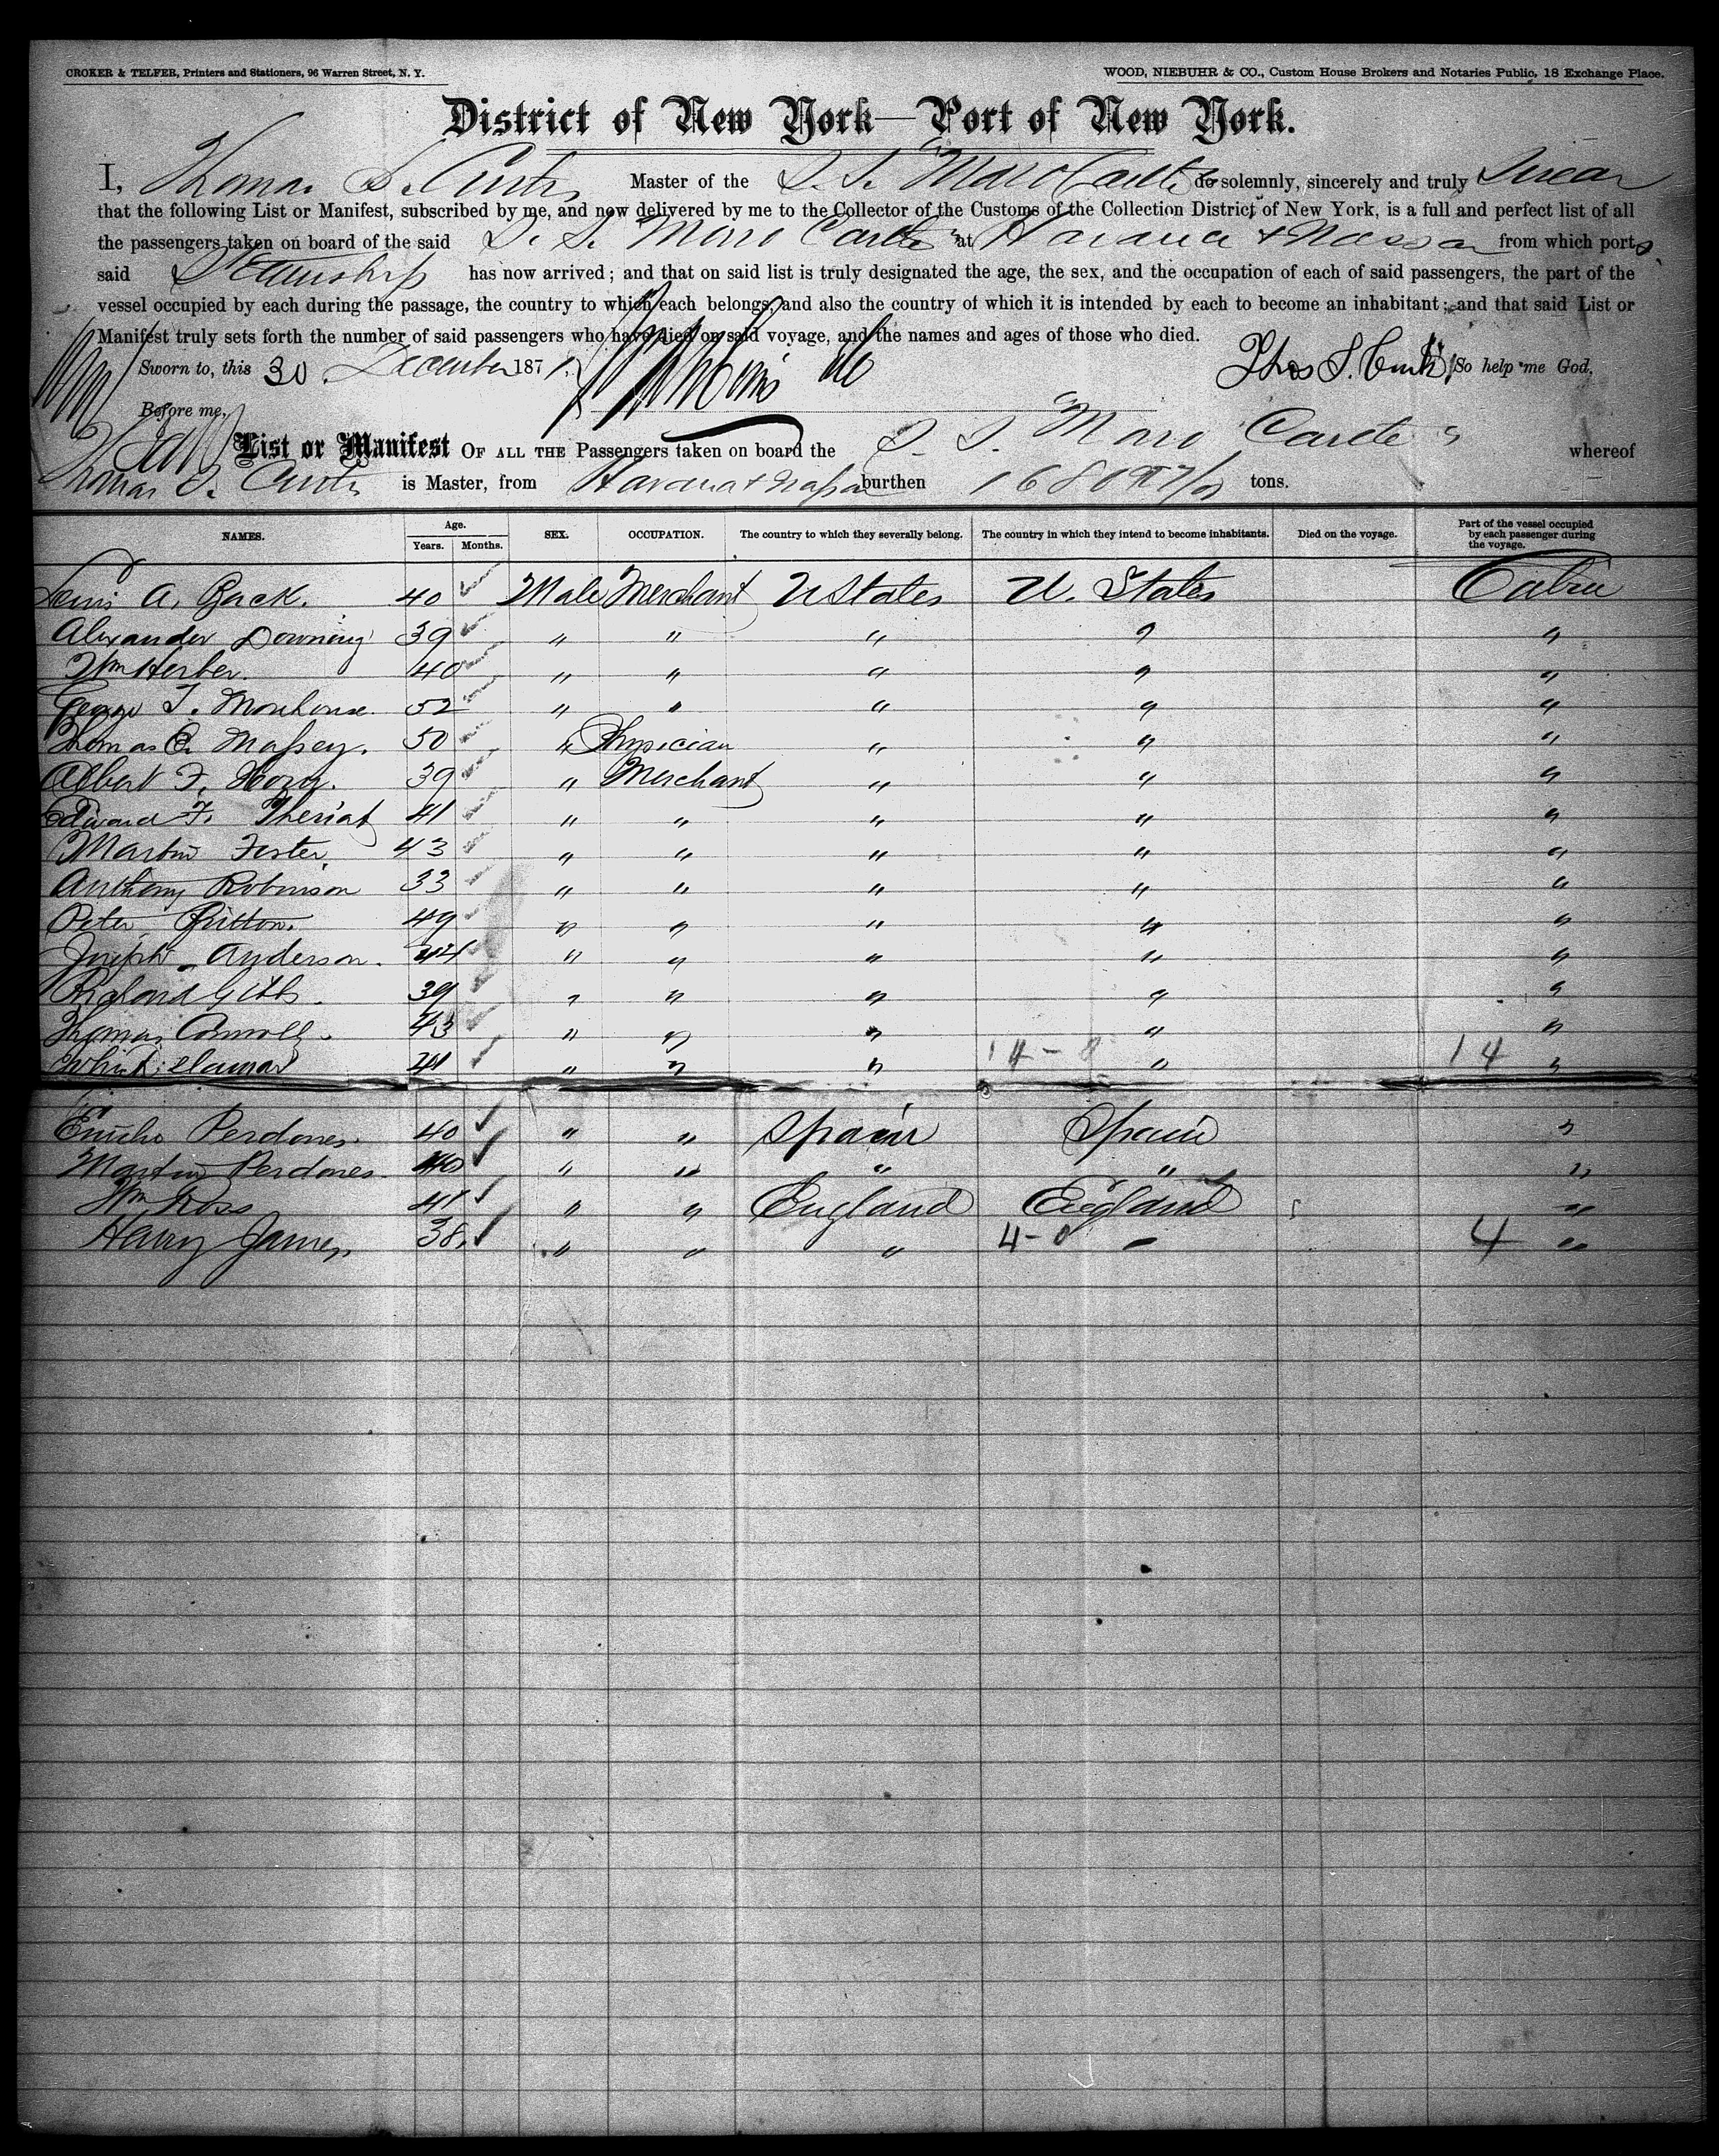 CROKER & TELFER, Printers and Stationers, 96 Warren Street, N. Y. WOOD, NIEBUHR & CO., Custom House Brokers and Notaries Public, 18 Exchange Place.
District of New York—Port of New York.
I, Thomas S. Curtis Master of the S. S. "Morro Castle" do solemnly, sincerely and truly Swear
that the following List or Manifest, subscribed by me, and now delivered by me to the Collector of the Customs of the Collection District of New York, is a full and perfect list of all
the passengers taken on board of the said S. S. Morro Castle" at Havana & Nassau from which ports
said Steamship has now arrived; and that on said list is truly designated the age, the sex, and the occupation of each of said passengers, the part of the
vessel occupied by each during the passage, the country to which each belongs, and also the country of which it is intended by each to become an inhabitant; and that said List or
Manifest truly sets forth the number of said passengers who have died on said voyage, and the names and ages of those who died.
Sworn to, this 30 December 1871, Thos S. Curtis So help me God,
Before me,
List or Manifest OF ALL THE Passengers taken on board the S. S. "Morro Castle" whereof
Thomas S. Curtis is Master, from Havana & Nassau burthen 1680 tons.
NAMES. Age. Years. Months. SEX. OCCUPATION. The country to which they severally belong. The country in which they intend to become inhabitants. Died on the voyage. Part of the vessel occupied by each passenger during the voyage.
Louis A. 40 Male Merchant U States U. States Cabin
Alexander Downing 39 " " " " "
Wm Herber. 40 " " " " "
George T. Morehouse. 52 " " " " "
Thomas Massey. 50 " Physician " " "
Albert F. Horn. 39 " Merchant " " "
Edward F. Theriat 41 " " " " "
Martin Foster, 43 " " " " "
Anthony Robinson 33 " " " " "
Peter Britton. 49 " " " " "
Joseph Anderson. 44 " " " " "
Richard Gibbs. 39 " " " " "
Thomas Connolly. 43 " " " " "
41 " " " 14 - 8 " 14 "
Perdones. 40 " " Spain Spain "
Martin Perdones. 40 " " " " "
Wm Ross 41 " " England England "
Harry James, 38, " " " 4-0 " 4 "